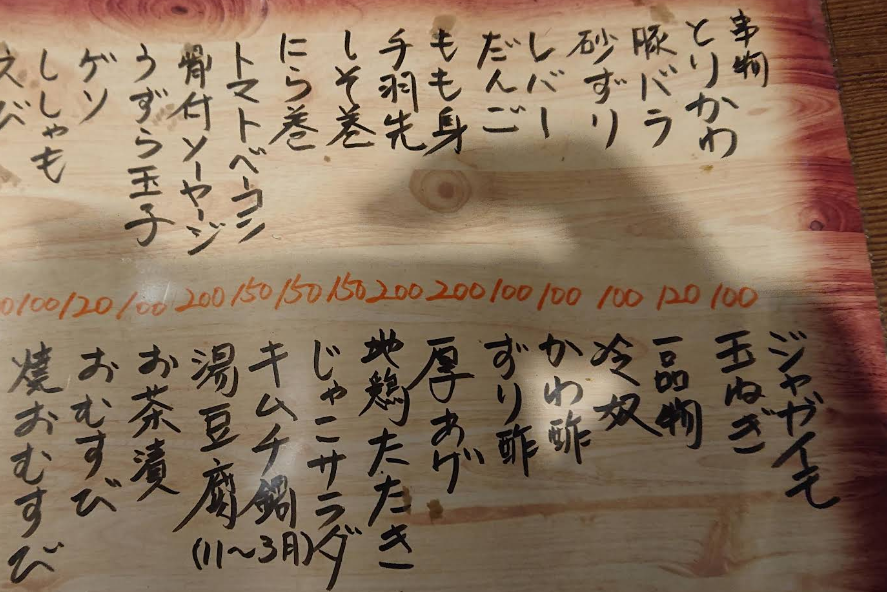 串物
とりかわ 100
豚バラ 120
砂ずり 100
レバー 100
だんご 100
もも身 200
手羽先 200
しそ巻 150
にら巻 150
トマトベーコン 150
骨付ソーセージ 200
うずら玉子 100
ゲソ 120
ししゃも 100
えび
ジャガイモ
玉ねぎ
一品物
冷奴
かわ酢
ずり酢
厚あげ
地鶏たたき
じゃこサラダ
キムチ鍋
湯豆腐
(11〜3月)
お茶漬
おむすび
焼おむすび